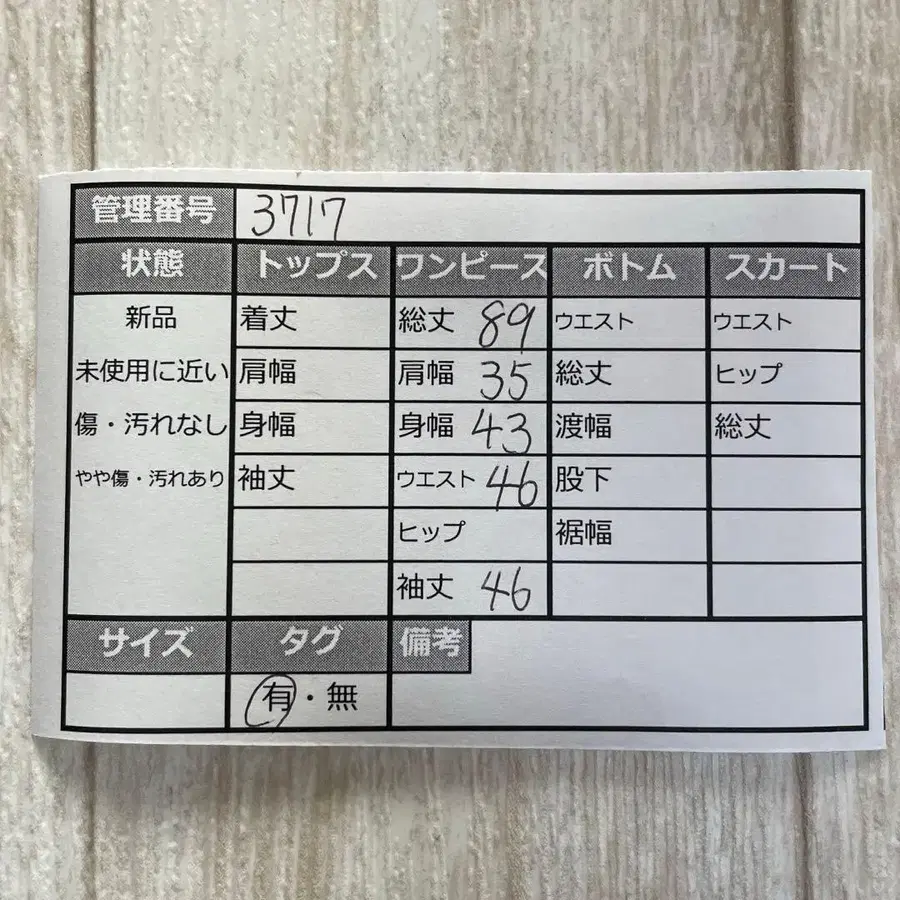 管理番号 3717
状態 トップス ワンピース ボトム スカート
新品 着丈 総丈 89 ウエスト ウエスト
未使用に近い 肩幅 肩幅 35 総丈 ヒップ
傷・汚れなし 身幅 身幅 43 渡幅 総丈
やや傷・汚れあり 袖丈 ウエスト 46 股下
ヒップ 裾幅
袖丈 46
サイズ タグ 備考
有・無